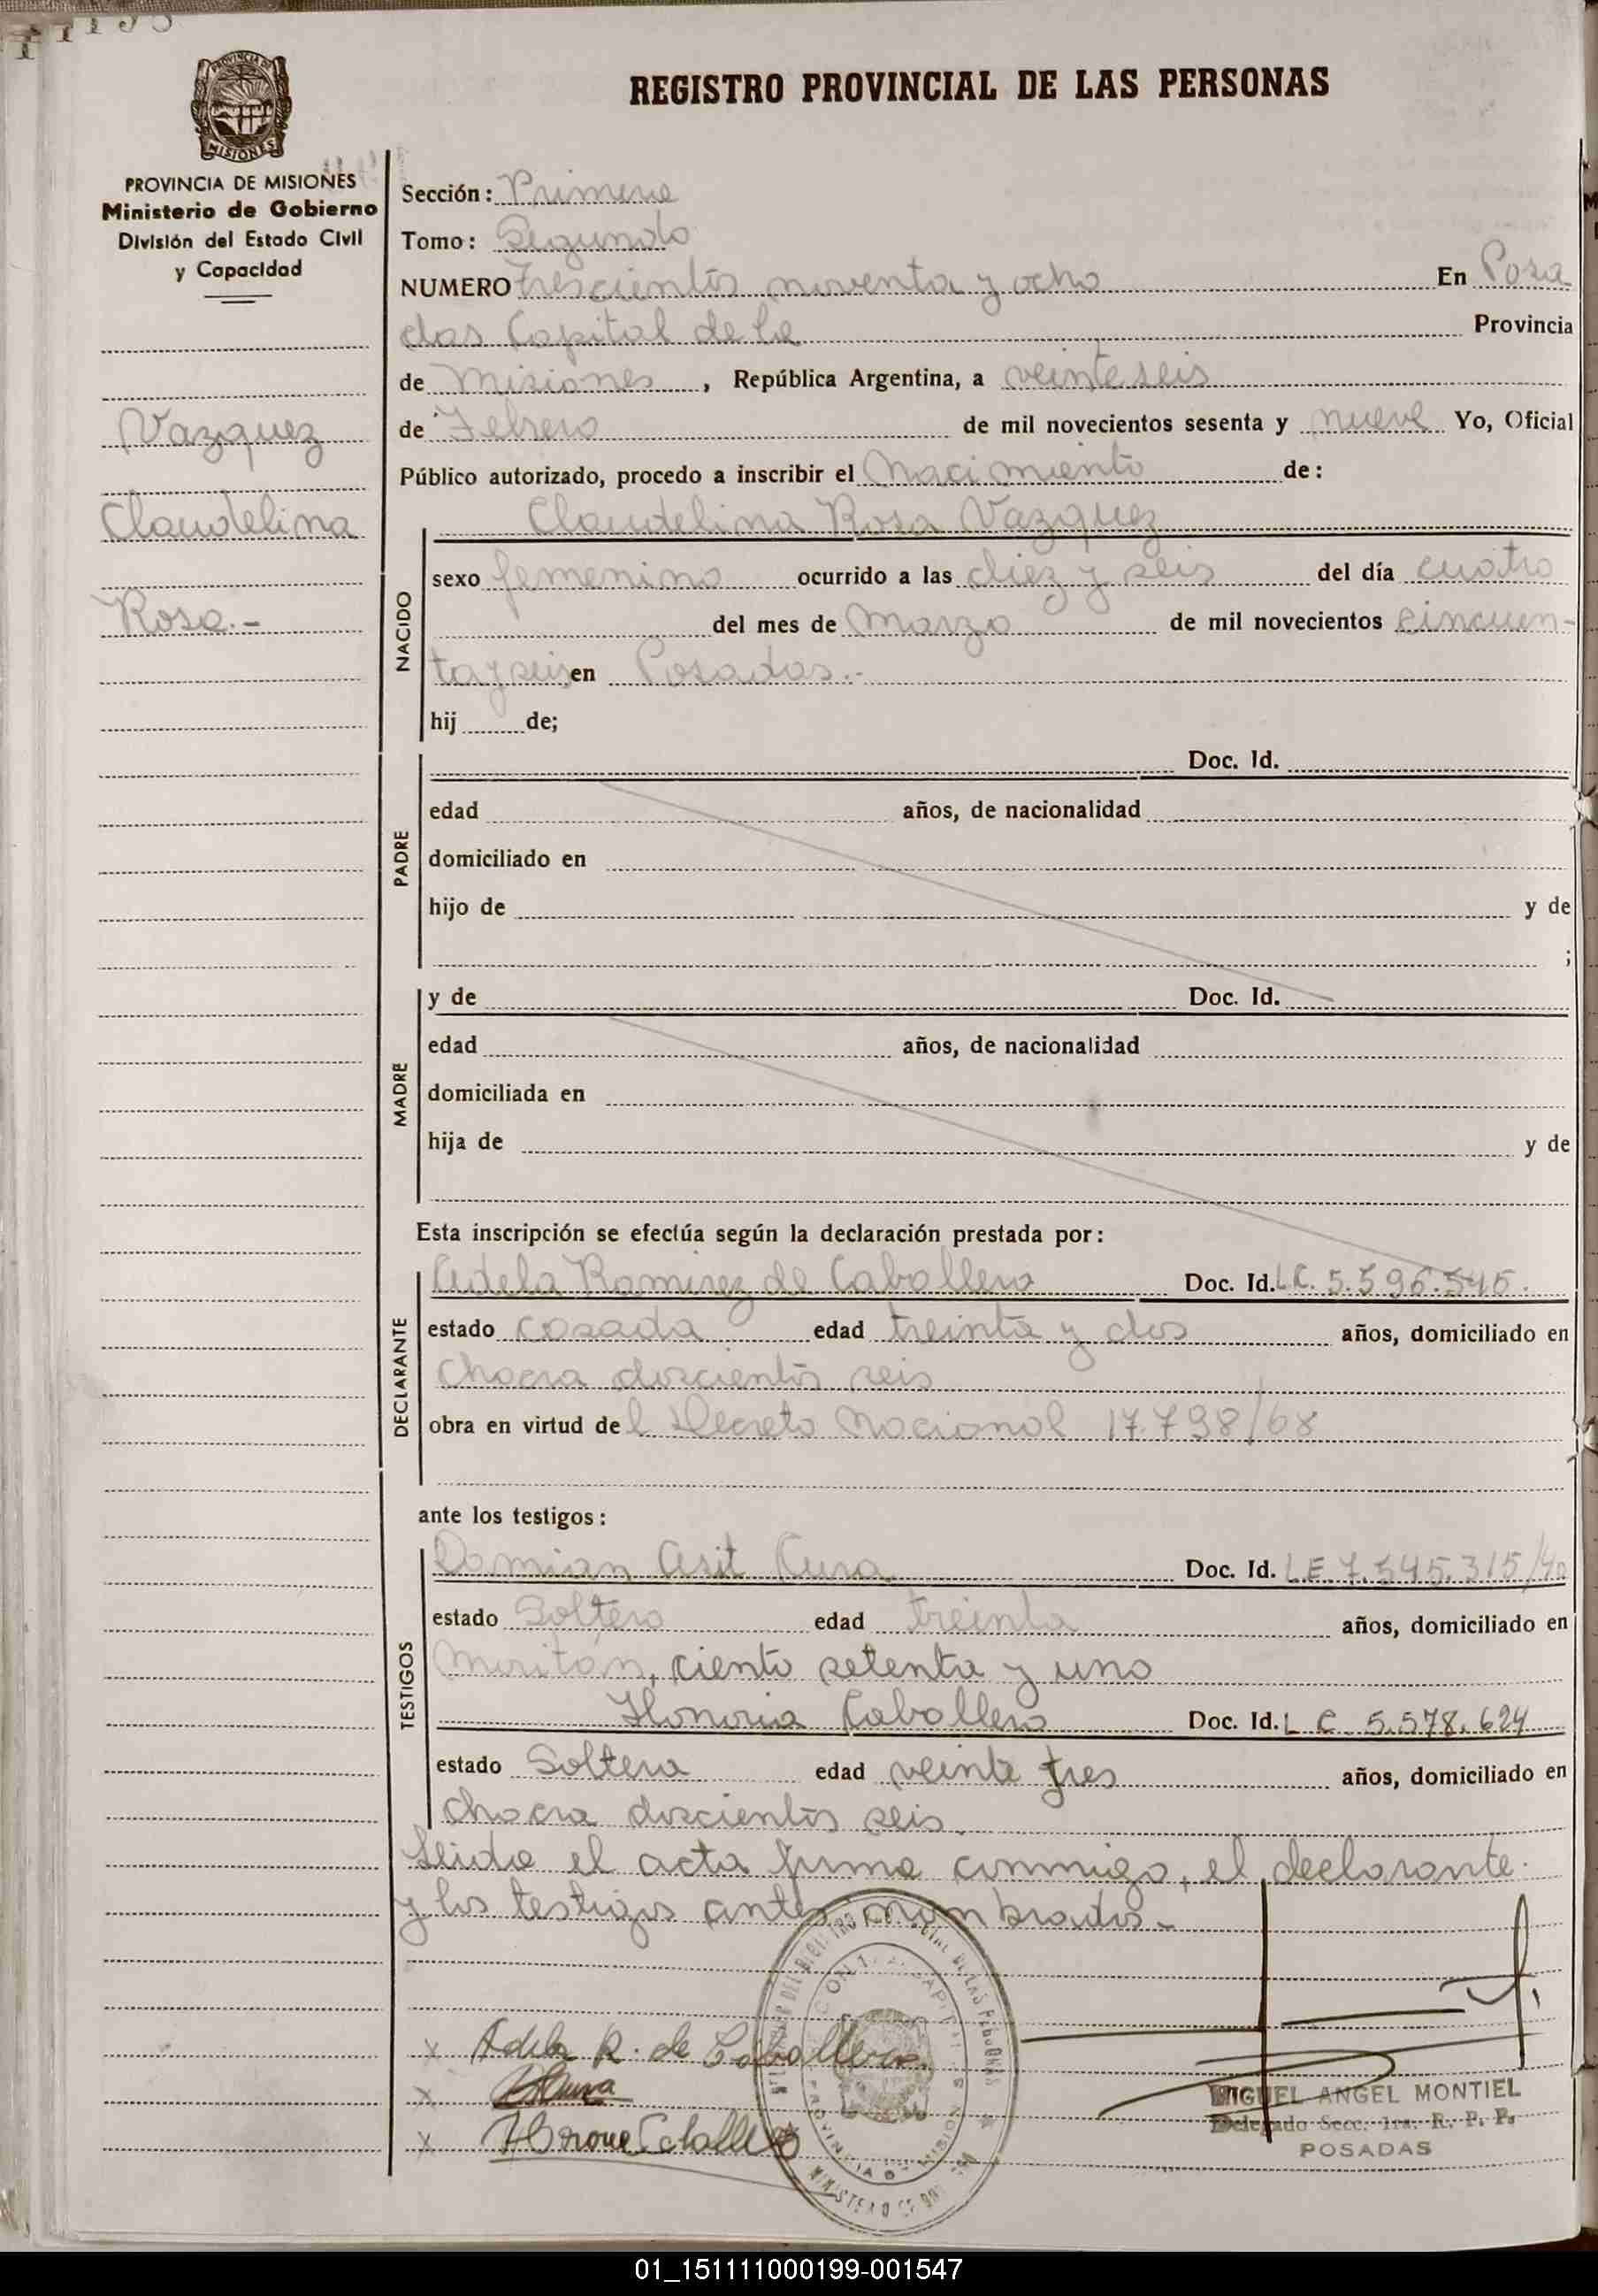 REGISTRO PROVINCIAL DE LAS PERSONAS
PROVINCIA DE MISIONES
Ministerio de Gobierno
División del Estado Civil
y Capacidad
Vazquez
Claudelina
Rosa.-
Sección: Primera
Tomo: Segundo
NUMERO Trescientos noventa y ocho En Posa
das Capital de la Provincia
de Misiones, República Argentina, a veinteseis
de Febrero de mil novecientos sesenta y nueve Yo, Oficial
Público autorizado, procedo a inscribir el Nacimiento de:
Claudelina Rosa Vazquez
NACIDO
sexo femenino ocurrido a las diez y seis del día cuatro
del mes de Marzo de mil novecientos cincuen-
ta y seis en Posadas.-
hij de;
PADRE
Doc. Id.
edad años, de nacionalidad
domiciliado en
hijo de y de
;
MADRE
y de Doc. Id.
edad años, de nacionalidad
domiciliada en
hija de y de
Esta inscripción se efectúa según la declaración prestada por:
DECLARANTE
Adela Ramirez de Caballero Doc. Id. L.C. 5.596.545.
estado casada edad treinta y dos años, domiciliado en
Chacra doscientos seis
obra en virtud del Decreto Nacional 17.798/68
ante los testigos:
TESTIGOS
Damian Asit Cura Doc. Id. L.E. 7.545.315/40
estado Soltero edad treinta años, domiciliado en
ciento setenta y uno
Honoria Caballero Doc. Id. L C 5.578.624
estado Soltera edad veinte tres años, domiciliado en
Chacra doscientos seis.
Leida el acta firma conmigo, el declarante
y los testigos antes nombrados.-
x Adela R. de Caballero
x
x Caballero
MIGUEL ANGEL MONTIEL
Delegado Secc. 1ra. R. P. P.
POSADAS
01_151111000199-001547